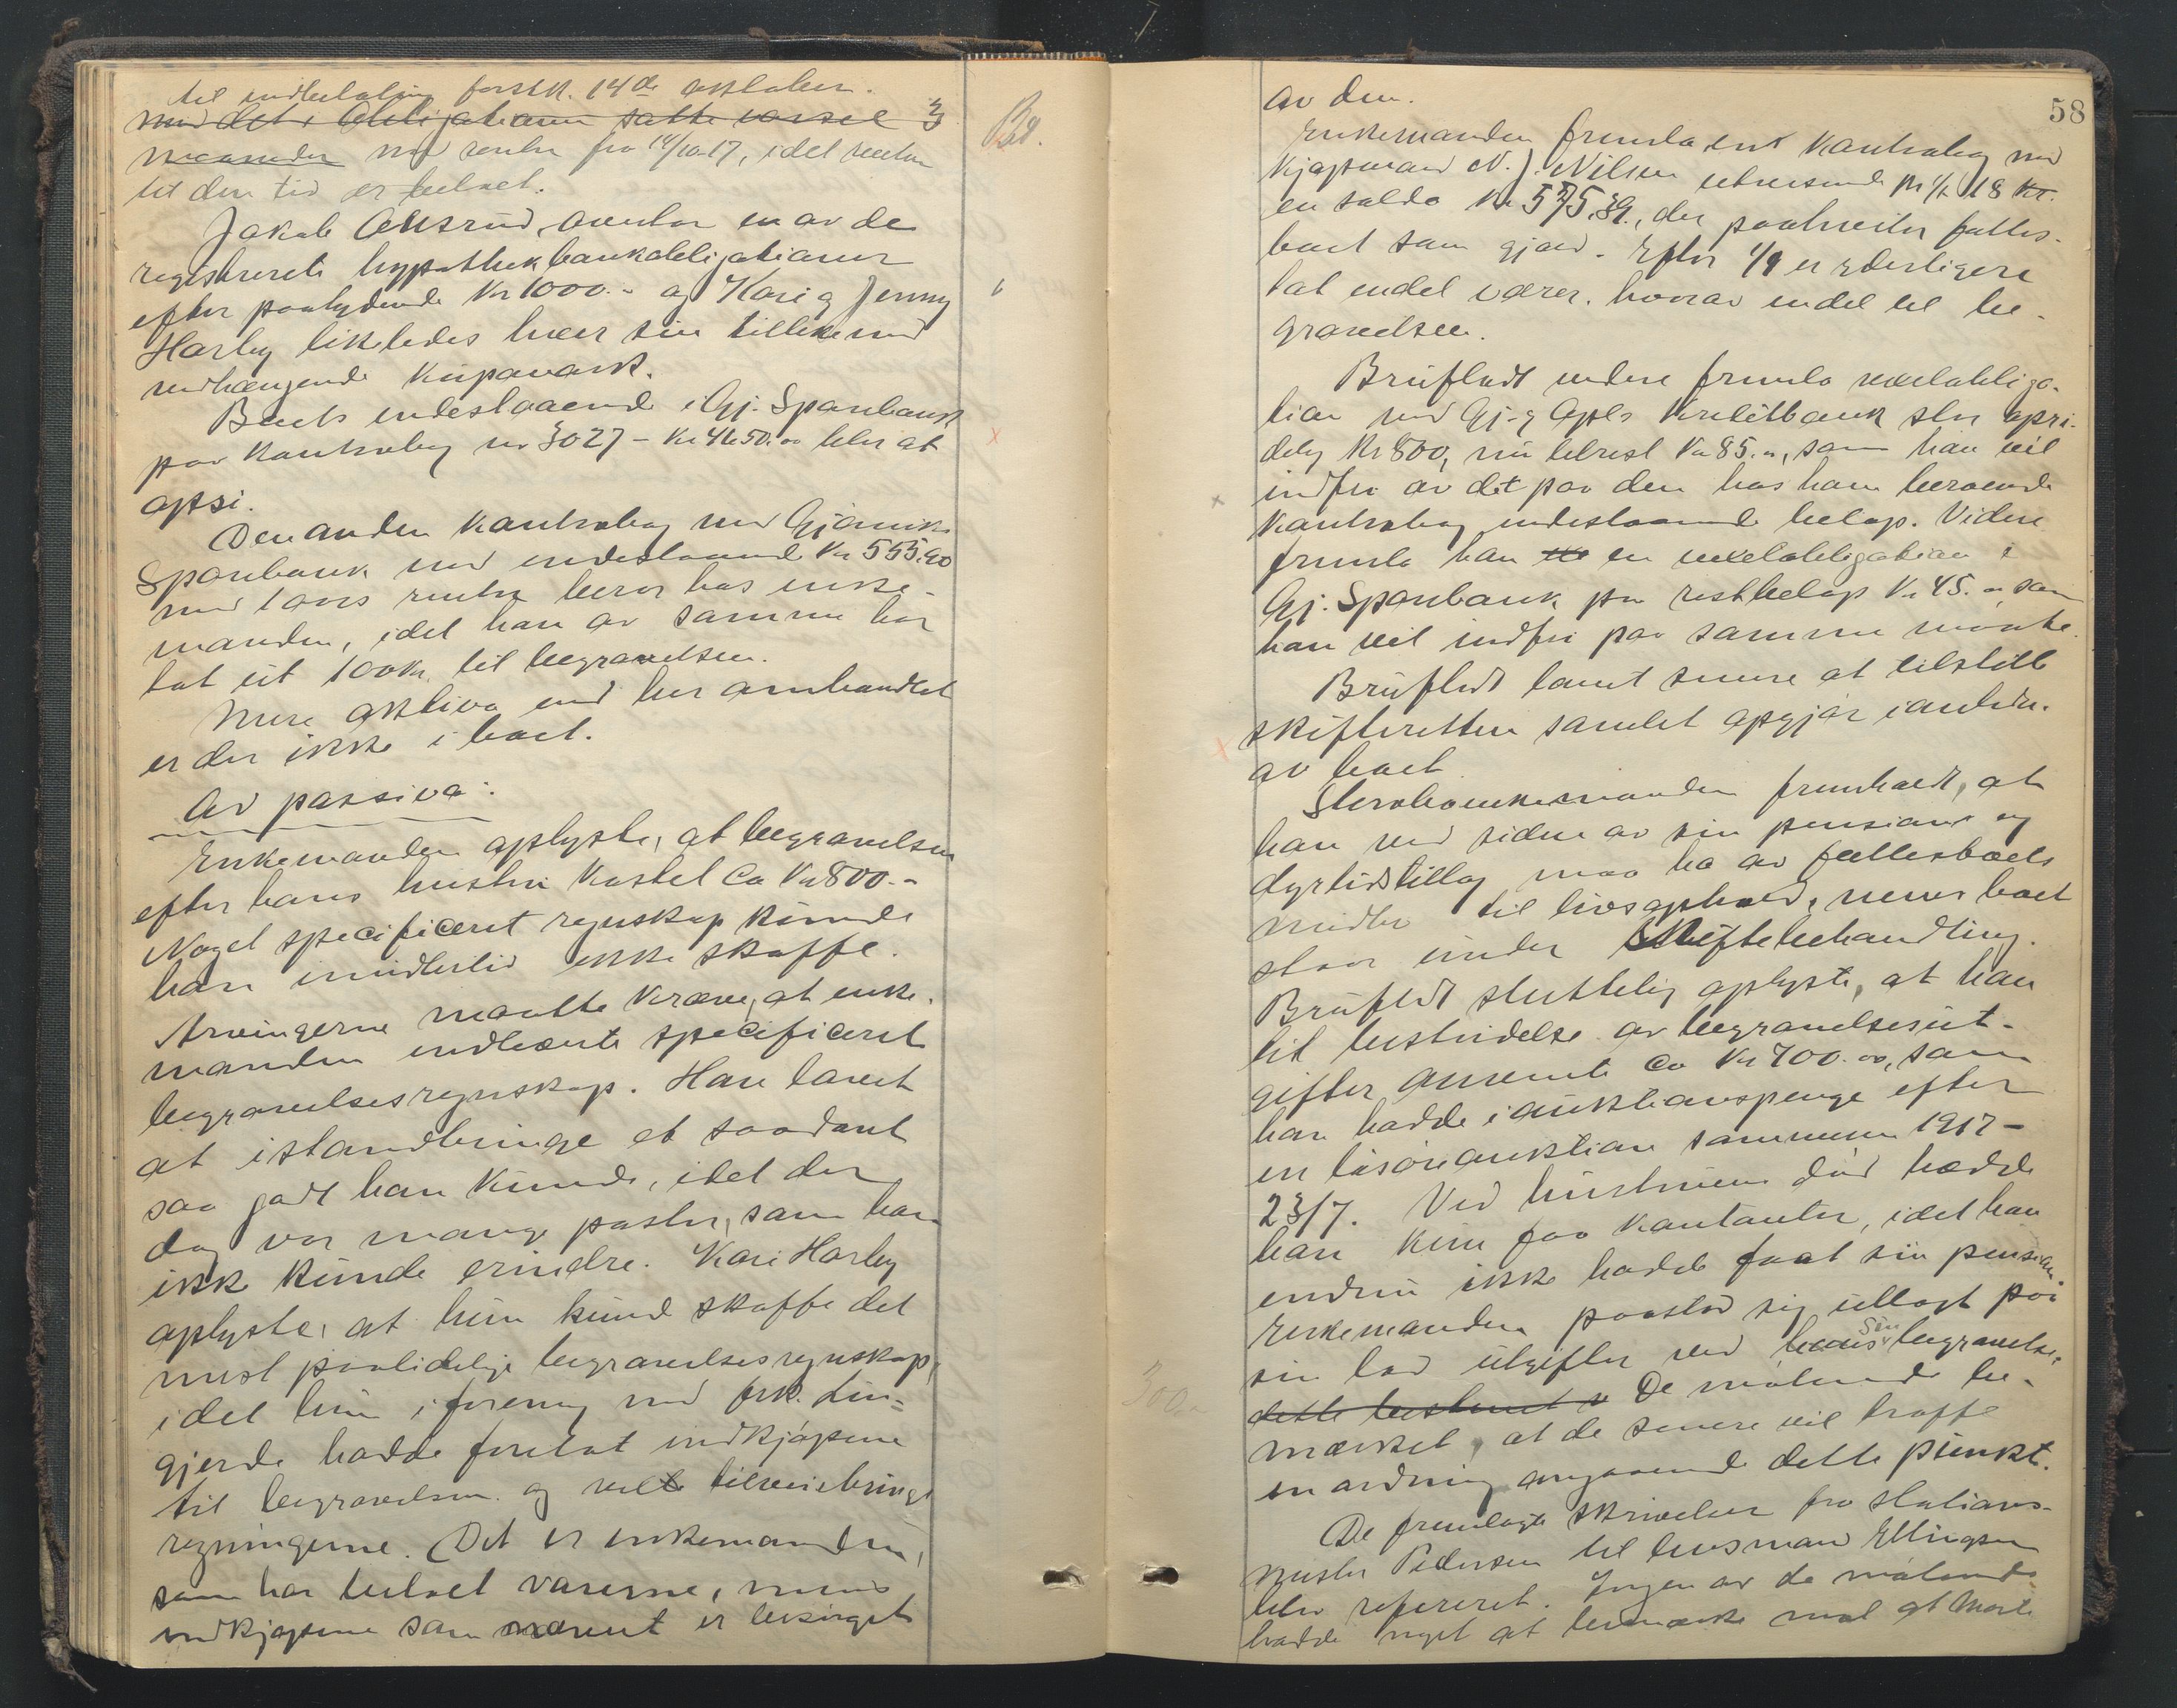 til indbetaling førstk. 14de oktober.
med det i Obligationen satte varsel 3
maaneder med renter fra 14/10-17, idet renten
til den tid er betalt.
Jakob Alisrud overtar en av de
registrerte hypothekbankobligationer
efter paalydende Kr 1000.- og Kari og Jenny
Harby likeledes hver sin tillikemed
vedhængende kupanark.
Boets indestaaende i Gj. Sparebank
paa kontrabog nr 3027 - Kr 4650.00 blir at
opsi.
Den anden kontrabog med Gjøviks
Sparebank med indestaaende Kr 555.90
med 1 aars renter beror hos enke-
manden, idet han av samme har
tat ut 100 Kr. til begravelsen.
Mere aktiva end her omhandlet
er der ikke i boet.
Av passiva:
Enkemanden oplyste, at begravelsen
efter hans hustru kostet ca Kr 800.-
Noget specificeret regnskap kunde
han imidlertid ikke skaffe.
Arvingerne maatte kræve, at enke-
manden indleverte specificeret
begravelsesregnskap. Han lovet
at istandbringe et saadant
saa godt han kunde, idet der
dog var mange poster, som han
ikke kunde erindre. Kari Harby
oplyste, at hun kunde skaffe det
mest paalidelige begravelsesregnskap,
idet hun i forening med frk. Lin=
gjerde hadde foretat indkjøpene
til begravelsen og vilde tilveiebringe
regningerne. Det er enkemanden,
som har betalt varerne, mens
indkjøpene som nævnt er besørget
58
av dem.
Enkemanden fremla en kontrabog med
kjøpmand N. J. Nilsen utvisende pr 1/1 18 Kr.
en saldo Kr 575.39, der paahviler fælles-
boet som gjæld. Efter 1/9 er yderligere
tat endel varer, hvorav endel til be-
gravelsen.
Brufladt videre fremla vexelobliga-
tion med Gj. og Opl's Kreditbank stor opri-
delig Kr 800, nu tilrest Kr 85.00, som han vil
indfri av det paa den hos ham beroende
kontrabog indestaaende beløp. Videre
fremla han en vexelobligation i
Gj. Sparebank paa restbeløp Kr 45.00 som
han vil indfri paa samme maate.
Brufladt lovet senere at tilstille
skifteretten samlet opgjør i anledn.
av boet
Sterbøenkemanden fremholdt, at
han ved siden av sin pension og
dyrtidstillæg maa ha av fællesboets
midler til livsophold, mens boet
staar under skiftebehandling.
Brufladt sluttelig oplyste, at han
til bestridelse av begravelsesut-
gifter anvendte ca Kr 700.00, som
han hadde i auktionspenge efter
en løsøreauktion sommeren 1917 -
23/7. Ved hustruens død hadde
han kun faa kontanter, idet han
endnu ikke hadde faat sin pension.
Enkemanden paastod sig utlagt paa
sin lod utgifter ved hans sin begravelse,
dette bestemt De møtende be-
mærket, at de senere vil træffe
en ordning angaaende dette punkt.
De fremlagte skrivelser fra stations-
mester Pedersen til lensmand Ellingsen
blev refereret. Ingen av de møtende
hadde noget at bemærke mot at Marte
300.-